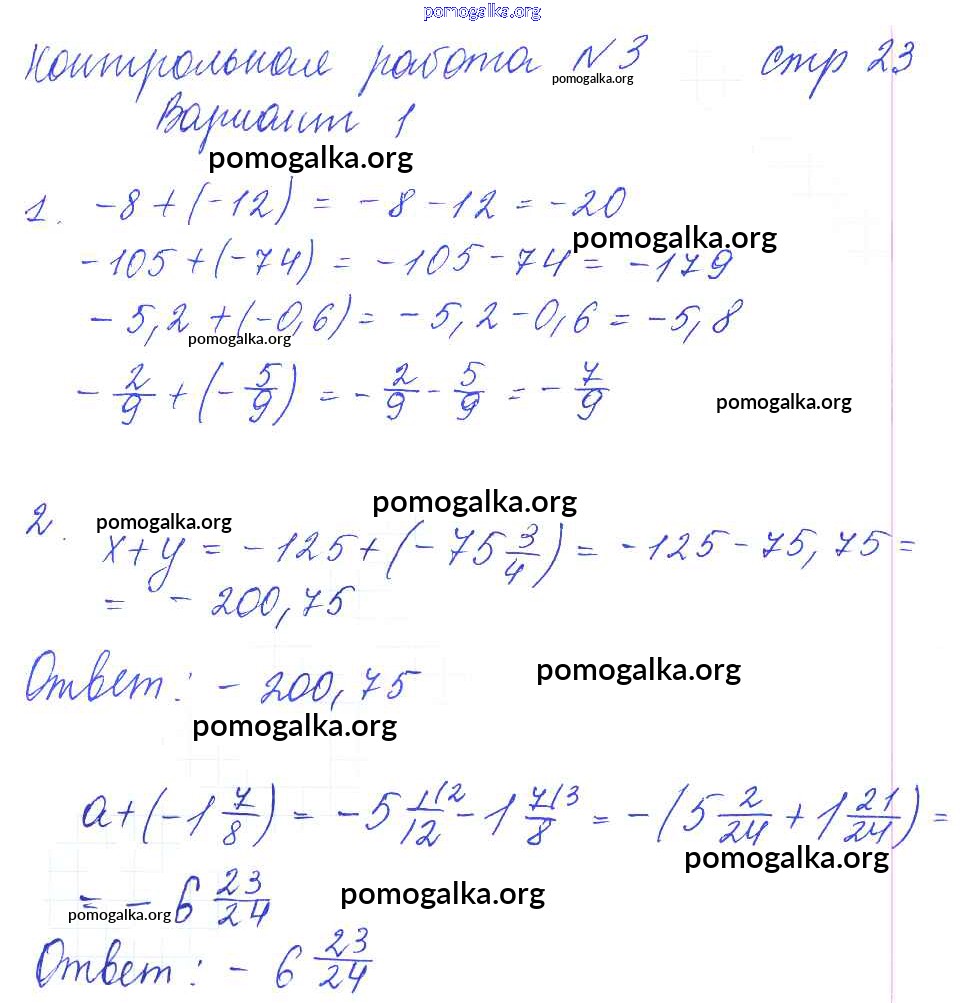 pomogalka.org
Контрольная работа №3 стр 23
pomogalka.org
Вариант 1
pomogalka.org
1. -8 + (-12) = -8 - 12 = -20
pomogalka.org
-105 + (-74) = -105 - 74 = -179
-5,2 + (-0,6) = -5,2 - 0,6 = -5,8
pomogalka.org
-2/9 + (-5/9) = -2/9 - 5/9 = -7/9
pomogalka.org
pomogalka.org
2. pomogalka.org
x + y = -125 + (-75 3/4) = -125 - 75,75 =
= -200,75
pomogalka.org
Ответ: -200,75
pomogalka.org
a + (-1 7/8) = -5 1/12 (2 - 1 7/8 (3 = -(5 2/24 + 1 21/24) =
pomogalka.org
= -6 23/24
pomogalka.org
pomogalka.org
Ответ: -6 23/24